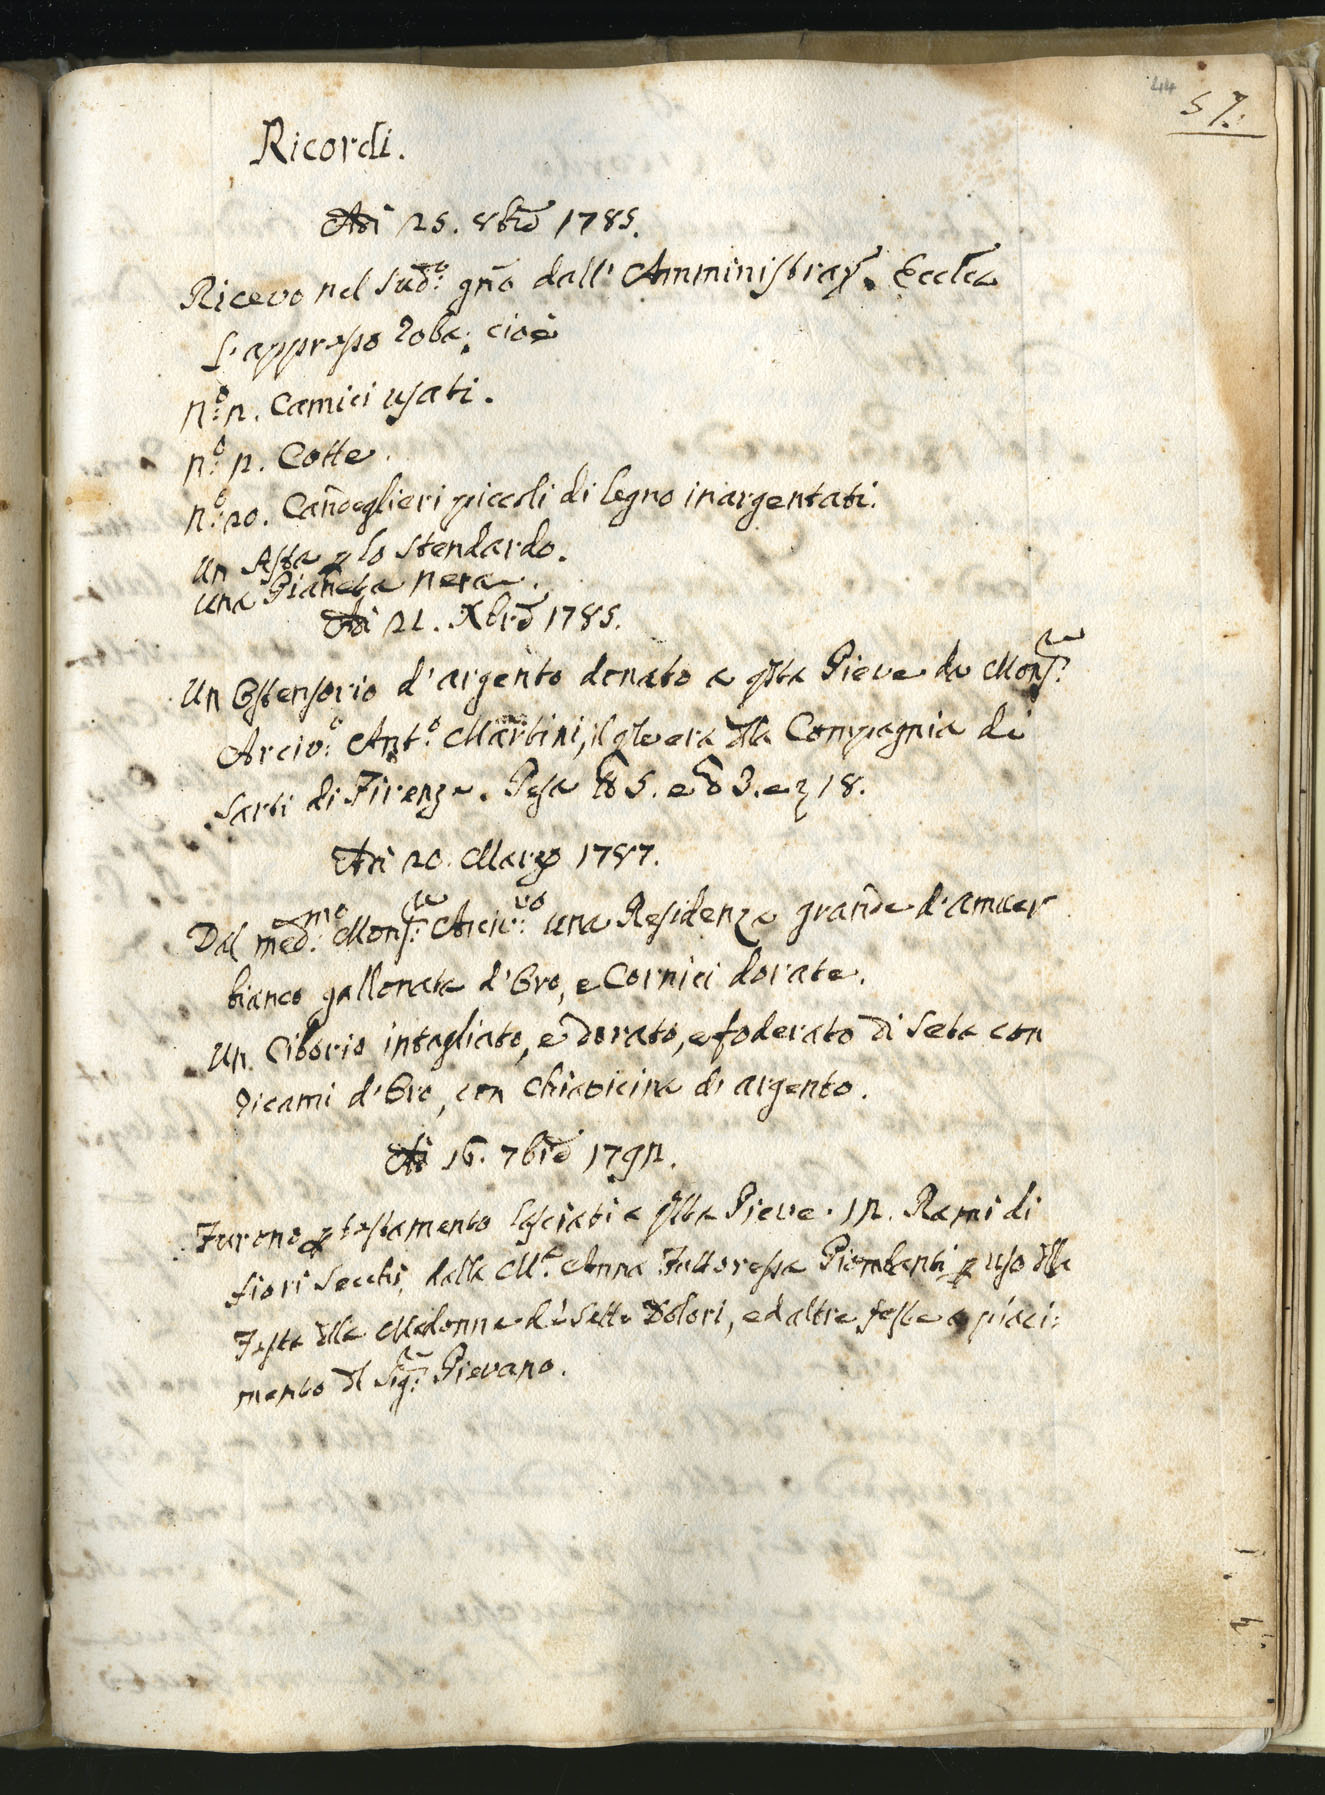 44
57.
Ricordi.
Adì 25. 8bre 1785.
Ricevo nel sudo: gno dall' Amministraz. Eccles
l'appresso roba; cioè
No: 2. Camici usati.
no: 2. Cotte.
no: 20. Candeglieri piccoli di legno inargentati.
un Asta p lo stendardo.
una Pianeta nera.
Adì 21. Xbre 1785.
Un Ostensorio d'argento donato a qsta Pieve da Monsre:
Arcivo: Anto: Martini, il qle era dlla Compagnia di
Sarti di Firenze. Pesa 5. e 3. e 18.
Adì 20. Marzo 1787.
Dal medmo: Monsre: Arcivvo: una Residenza grande d'amuer
bianco gallonata d'Oro, e Cornici dorate.
Un Ciborio intagliato, e dorato, e foderato di Seta con
ricami d'Oro, con chiavicina di argento.
Adì 16. 7bre 1792.
Furono p testamento lasciati a qsta Pieve. 12. Rami di
fiori Secchi, dalla Ma: Anna Fattoressa Piombanti p uso dlla
Festa dlla Madonna de' Sette Dolori, ed altre feste a piaci:
mento dl Sigre: Pievano.